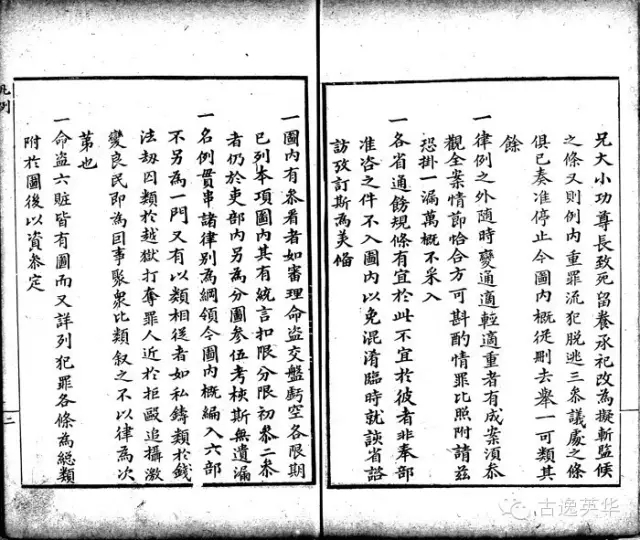 兄大小功尊長致死留養承祀改為擬斬監候
之條又則例內重罪流犯脫逃三參議處之條
俱已奏准停止今圖內概從刪去舉一可類其
餘
一律例之外隨時變通適輕適重者有成案須參
觀全案情節恰合方可斟酌情罪比照附請茲
恐掛一漏萬概不采入
一各省通飭規條有宜於此不宜於彼者非奉部
准咨之件不入圖內以免混淆臨時就該省諮
訪攷訂斯為美備
一圖內有參看者如審理命盜交盤虧空各限期
已列本項圖內其有統言扣限分限初參二參
者仍於吏部內另為分圖參伍考核斯無遺漏
一名例貫串諸律別為綱領今圖內概編入六部
不另為一門又有以類相從者如私鑄類於錢
法劫囚類於越獄打奪罪人近於拒毆追攝激
變良民即為因事聚衆比類叙之不以律為次
第也
一命盜六贓皆有圖而又詳列犯罪各條為總類
附於圖後以資參定
凡例
二
古逸英华